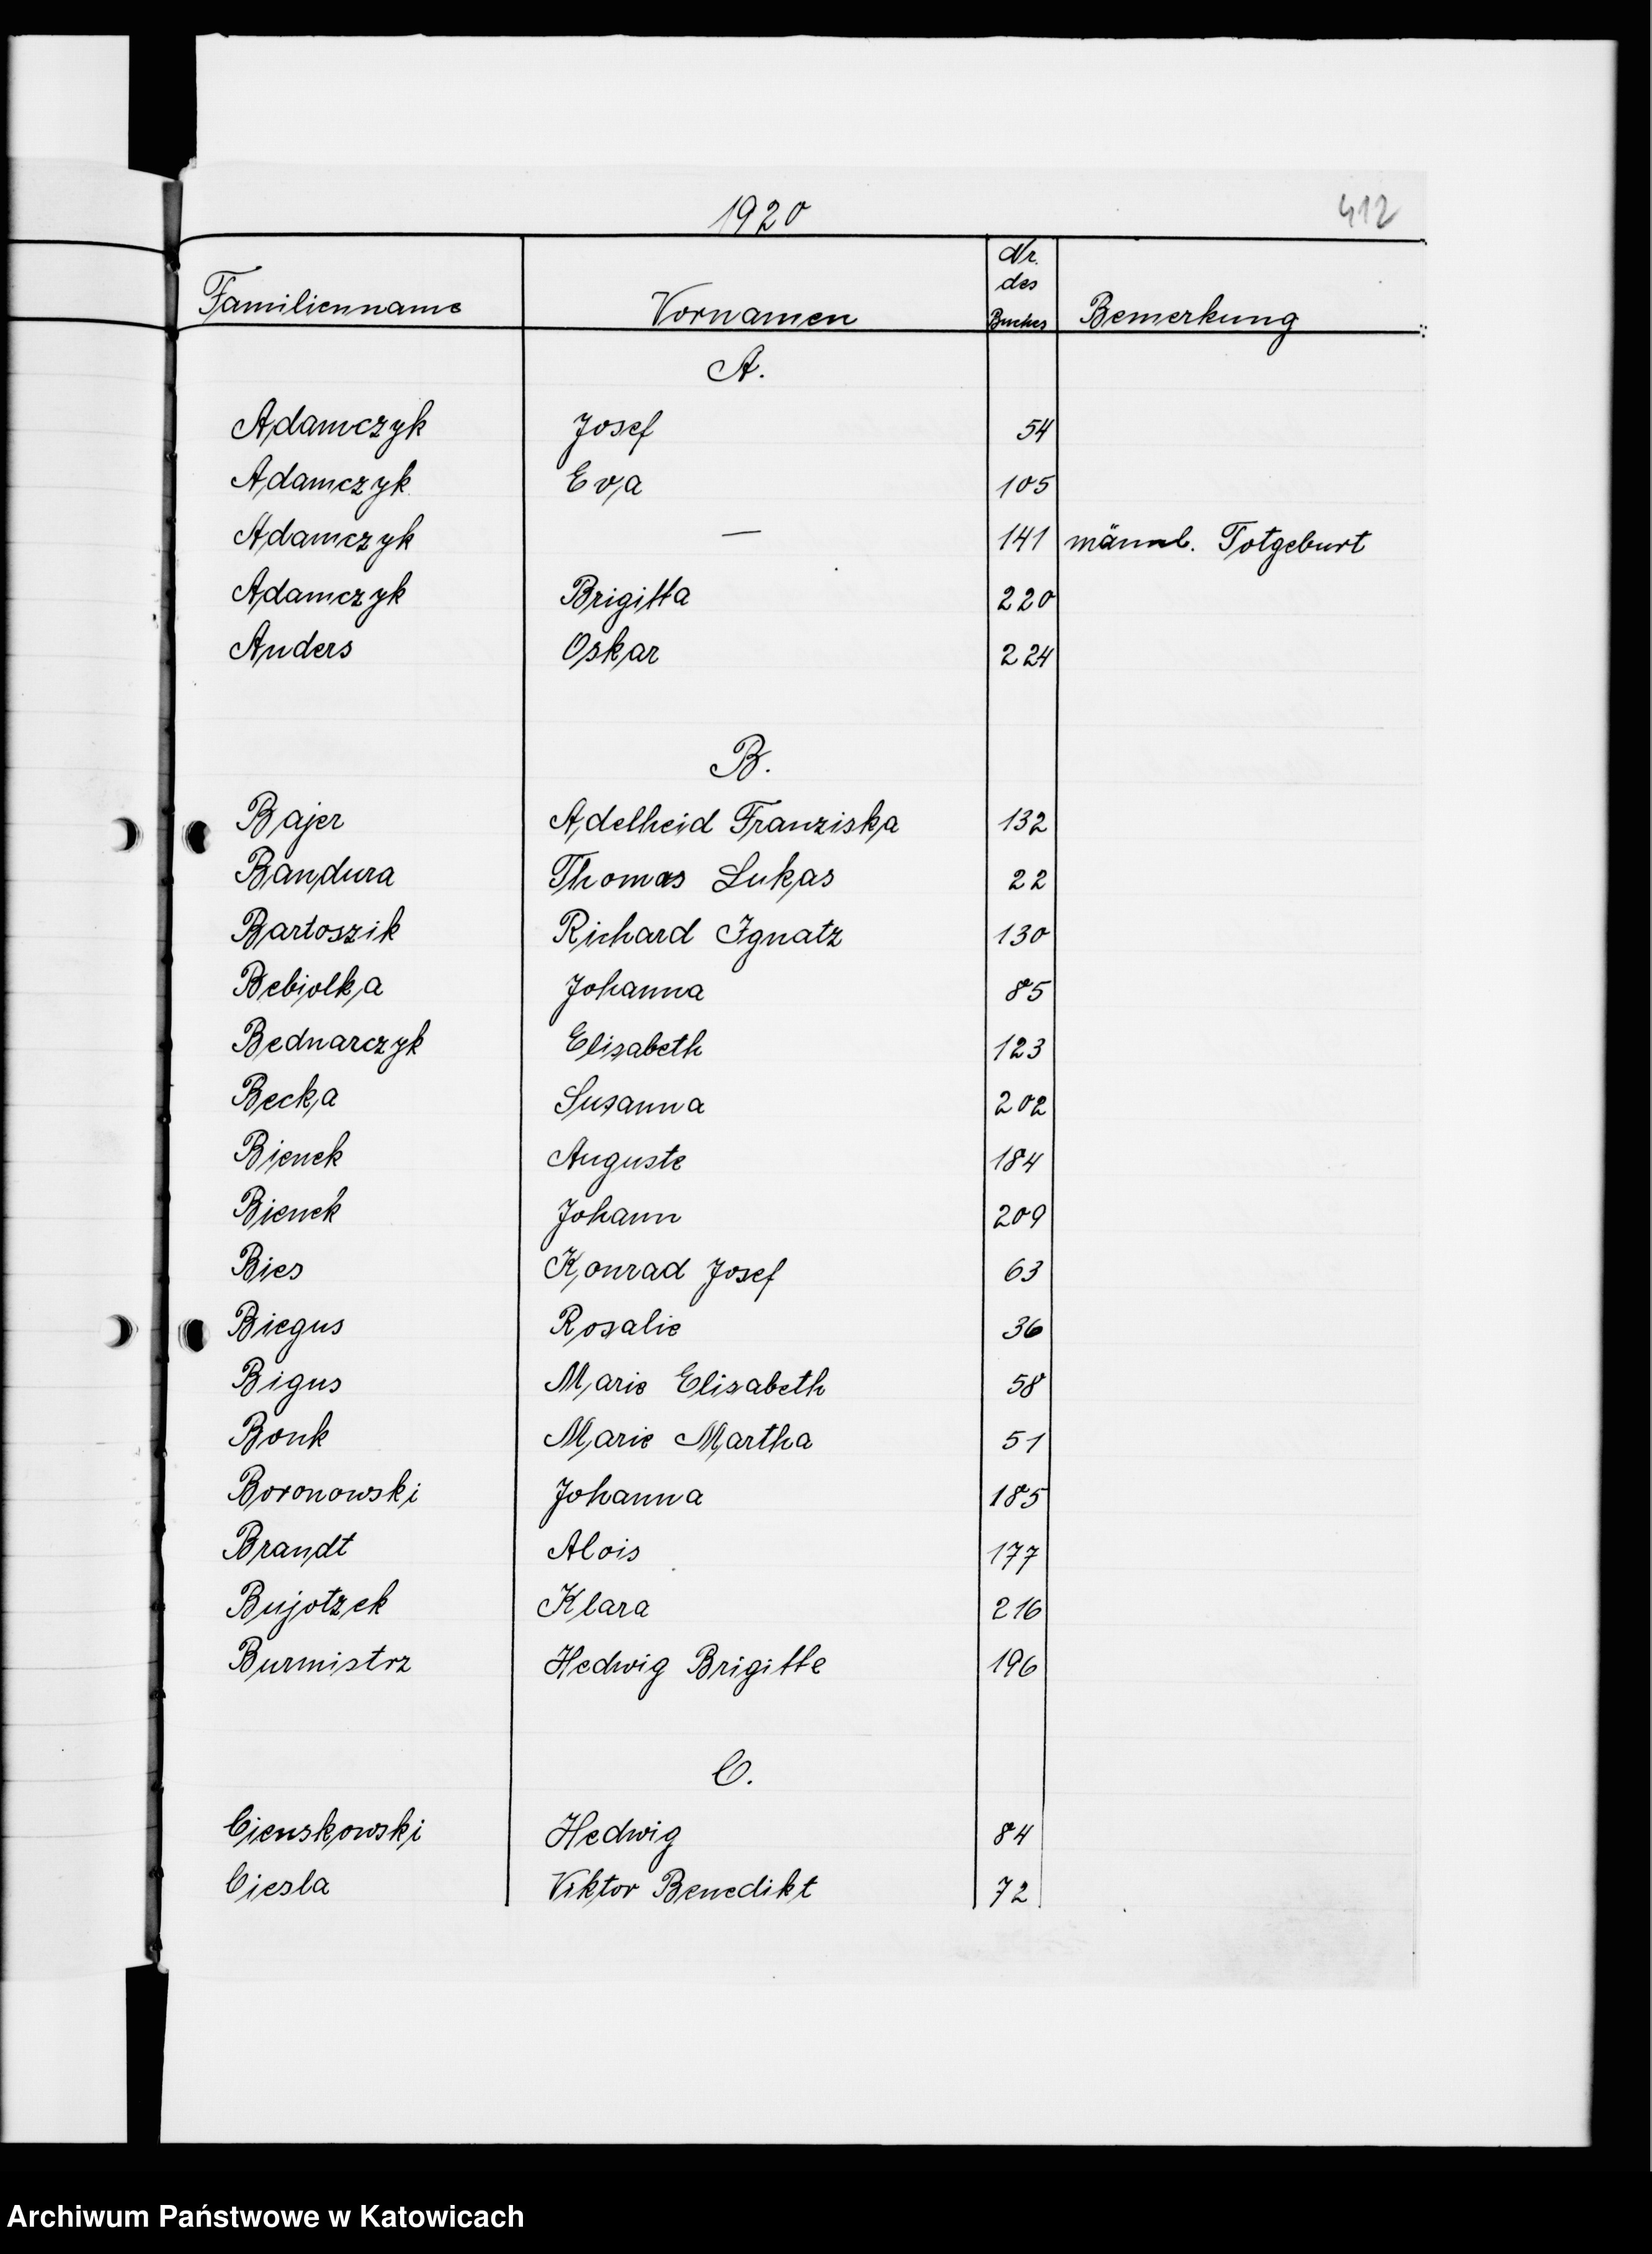 1920 412
Familienname Vornamen Nr. des Buches Bemerkung
A.
Adamczyk Josef 54
Adamczyk Eva 105
Adamczyk — 141 männl. Totgeburt
Adamczyk Brigitta 220
Anders Oskar 224
B.
Bajer Adelheid Franziska 132
Bandura Thomas Lukas 22
Bartoszik Richard Ignatz 130
Bebiolka Johanna 85
Bednarczyk Elisabeth 123
Becka Susanna 202
Bienek Auguste 184
Bienek Johann 209
Bies Konrad Josef 63
Biegus Rosalie 36
Bigus Marie Elisabeth 58
Bonk Marie Martha 51
Boronowski Johanna 185
Brandt Alois 177
Bujotzek Klara 216
Burmistrz Hedwig Brigitte 196
C.
Cienskowski Hedwig 84
Ciesla Viktor Benedikt 72
Archiwum Państwowe w Katowicach